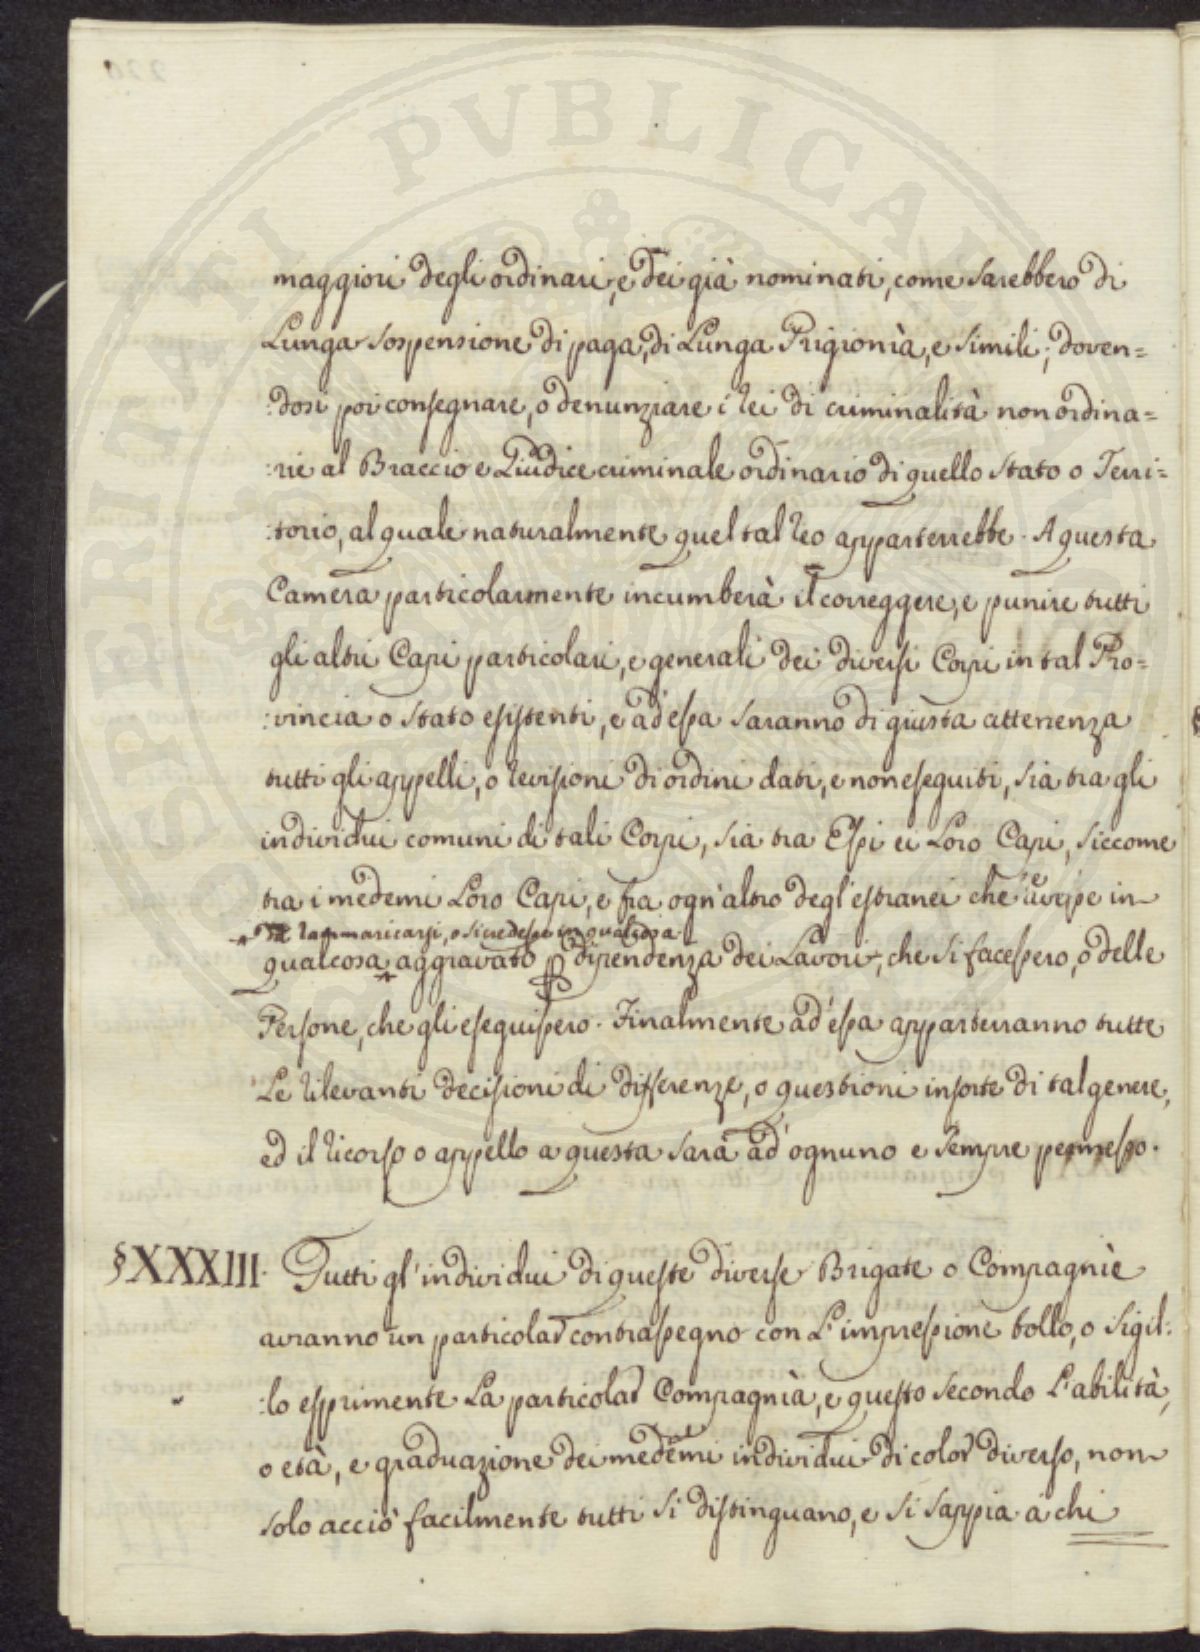 maggiori degli ordinari, e dei già nominati, come sarebbero di
Lunga sospensione di paga, di Lunga Prigionìa, e simili; doven=
:dosi poi consegnare, o denunziare i rei di criminalità non ordina=
:rie al Braccio e Giudice criminale ordinario di quello Stato o Terri=
:torio, al quale naturalmente quel tal reo apparterrebbe. A questa
Camera particolarmente incumberà il correggere, e punire tutti
gli altri Capi particolari, e generali dei diversi Corpi in tal Pro=
:vincia o Stato esistenti, e ad'essa saranno di giusta attenenza
tutti gli appelli, o revisioni di ordini dati, e non eseguiti, sia tra gli
individui comuni di tali Corpi, sia tra Essi ei Loro Capi, siccome
tra i medemi Loro Capi, e fra ogn'altro degl'estranei che avesse in
rammaricarsi, o si credesse in qualcosa
qualcosa aggravato p dipendenza dei Lavori, che si facessero, o delle
Persone, che gli eseguissero. Finalmente ad'essa apparterranno tutte
Le rilevanti decisioni di differenze, o questioni insorte di tal genere,
ed il ricorso o appello a questa sarà ad'ognuno e sempre permesso.
§XXXIII. Tutti gl'individui di queste diverse Brigate o Compagnìe
avranno un particolar contrassegno con L'impressione bollo, o Sigil:
:lo esprimente La particolar Compagnìa, e questo secondo L'abilità,
o età, e graduazione dei medemi individui di color diverso, non
solo acciò facilmente tutti si distinguano, e si sappia a chi
SPERITATI PUBLICAE